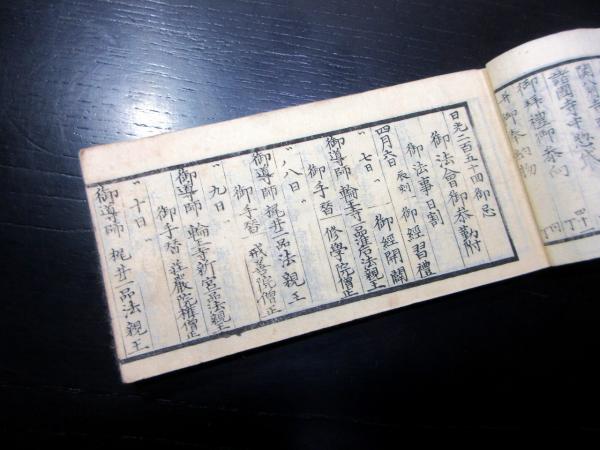 諸國寺々惣代
御拝禮御参向
并御奉納物
日光二百五十回御忌
御法會御参勤附
御法事日割
四月六日 辰刻 御經習禮
〃 七日 〃 御經開闢
御導師 輪王寺一品准后法親王
御手替 修學院僧正
〃 八日 〃
御導師 梶井一品法親王
御手替 戒善院僧正
〃 九日 〃
御導師 輪王寺新宮二品法親王
御手替 莊嚴院権僧正
〃 十日 〃
御導師 梶井一品法親王